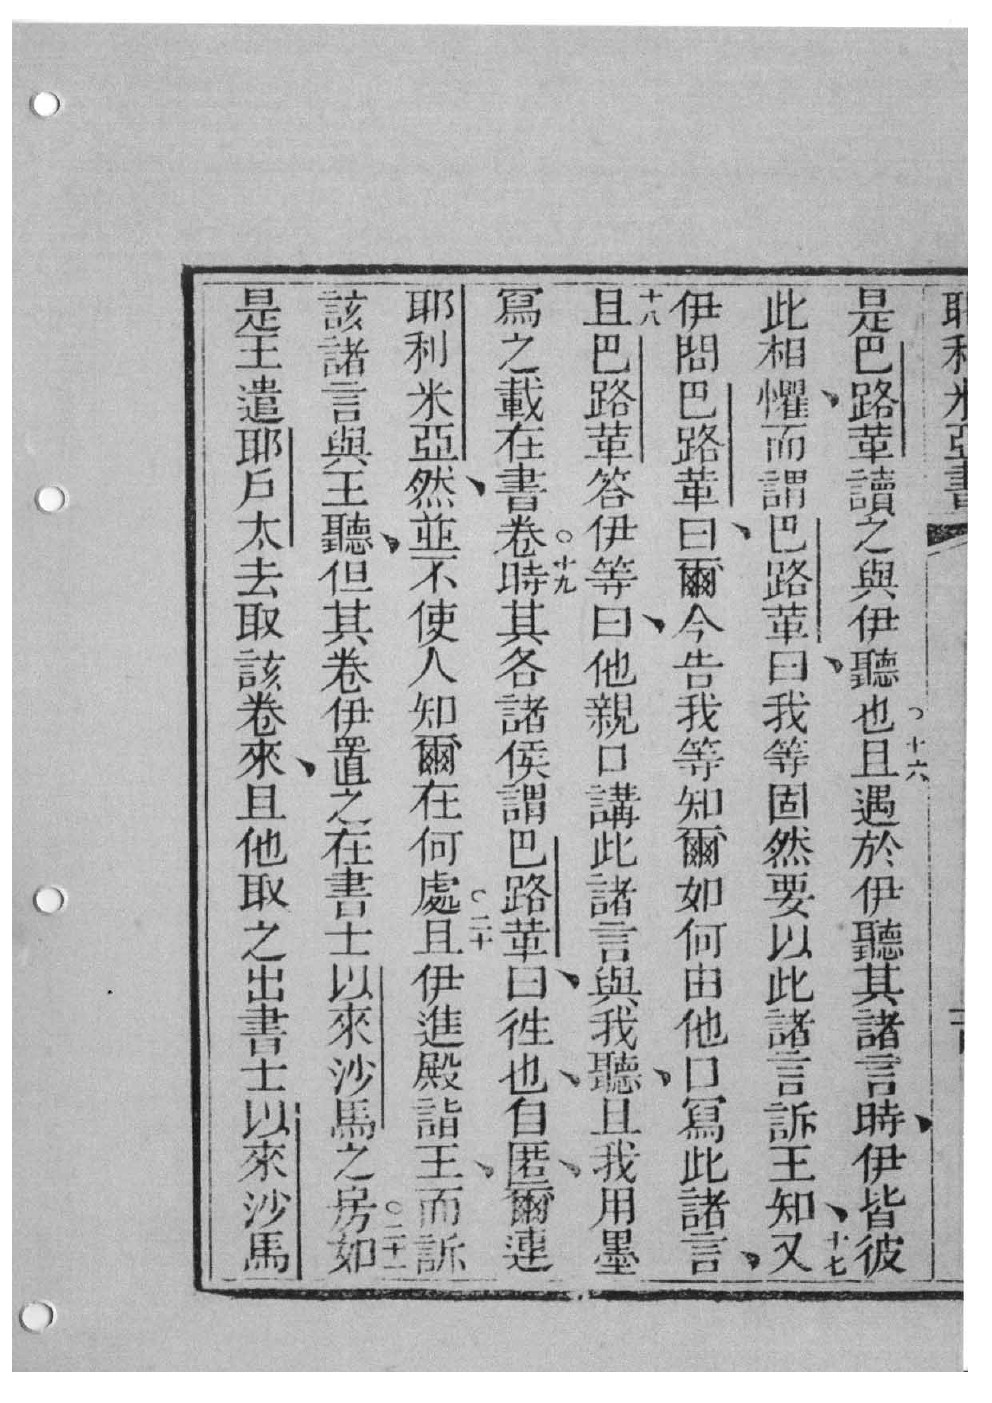 耶利米亞書
是巴路革讀之與伊聽也○十六且遇於伊聽其諸言時、伊皆彼
此相懼、而謂巴路革曰、我等固然要以此諸言訴王知、十七又
伊問巴路革曰、爾今告我等知爾如何由他口寫此諸言、
十八且巴路革答伊等曰、他親口講此諸言與我聽、且我用墨
寫之載在書卷○十九時其各諸侯謂巴路革曰、徃也、自匿、爾連
耶利米亞然、並不使人知爾在何處○二十且伊進殿詣王、而訴
該諸言與王聽、但其卷伊置之在書士以來沙馬之房○二十一如
是王遣耶戶太去取該卷來、且他取之出書士以來沙馬